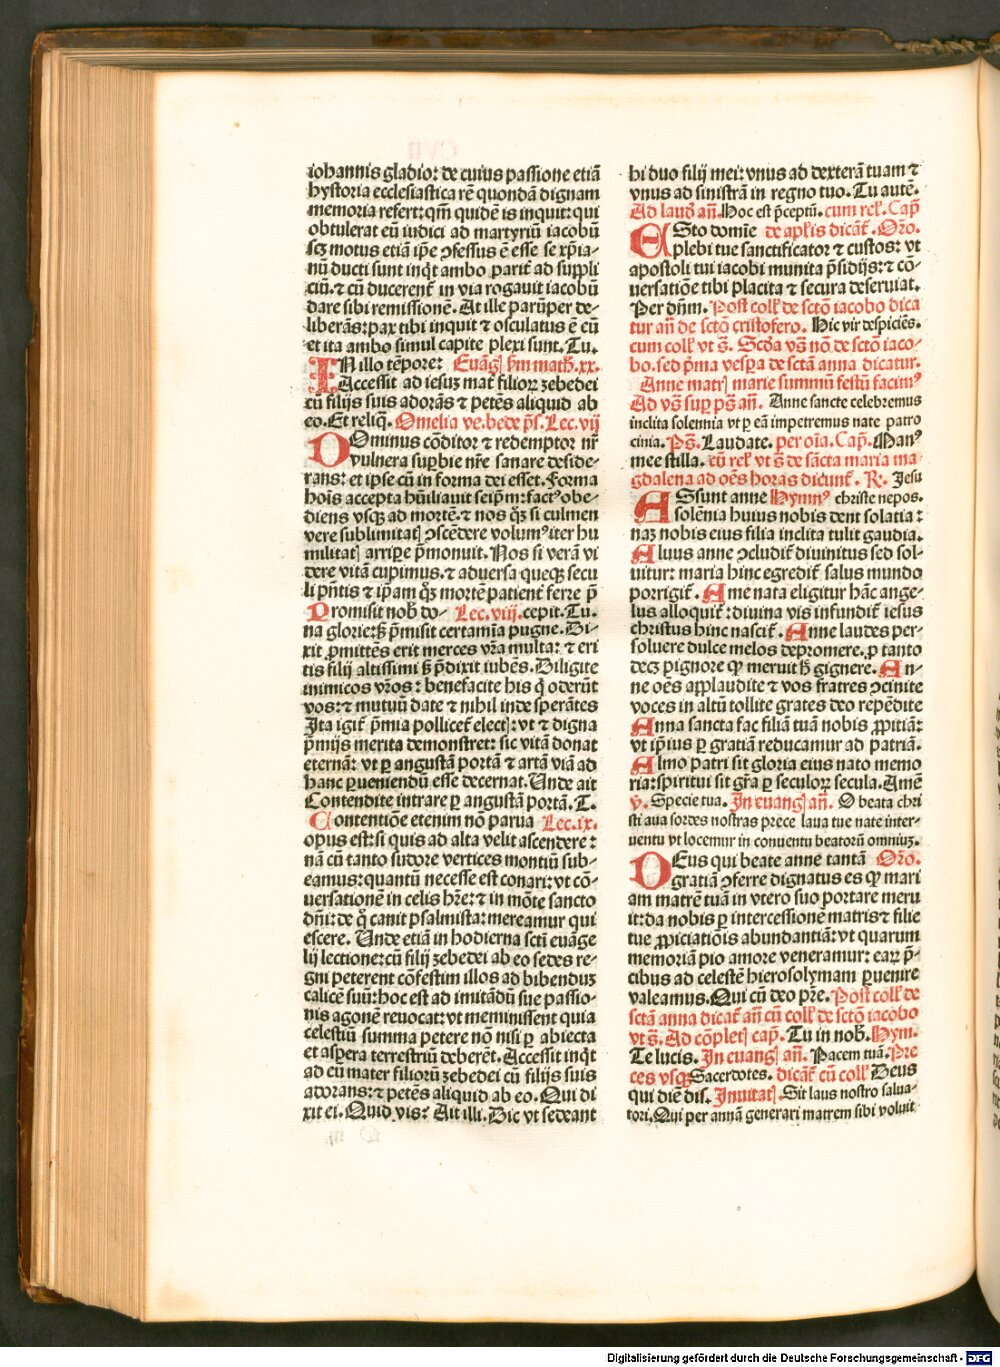 iohannis gladio: de cuius passione etiā
hystoria ecclesiastica rē quondā dignam
memoria refert: qm̄ quidē is inquit: qui
obtulerat eū iudici ad martyriū iacobū
scꝫ motus etiā ip̄e ↄfessus ē esse se xp̄ia-
nū ducti sunt inq̇t ambo parit̄ ad suppli
ciū. ⁊ cū ducerent̄ in via rogauit iacobū
dare sibi remissionē. At ille parūper de-
liberās: pax tibi inquit ⁊ osculatus ē eū
et ita ambo simul capite plexi sunt. Tu.
IN illo tēpore: Euāgꝭ. sm̄ math̄. xx.
Accessit ad iesuꝫ mat̄ filioꝝ zebedei
cū filijs suis adorās ⁊ petēs aliquid ab
eo. Et reliq̄. Omelia ve. bede p̄s. Lec. vij
DOminus cōditor ⁊ redemptor nr̄
vulnera suꝑbie nr̄e sanare deside-
rans: et ipse cū in forma dei esset. Forma
hoīs accepta hūiliauit seip̄m: factꝰ obe-
diens vsqꝫ ad mortē. ⁊ nos q̇ꝫ si culmen
vere sublimitatꝭ ↄscēdere volumꝰ iter hu
militatꝭ arriꝑe p̄monuit. Nos si verā vi
dere vitā cupimus. ⁊ aduersa queqꝫ secu
li pn̄tis ⁊ ip̄am q̇ꝫ mortē patient̄ ferre p̄
Promisit nob̄ do- Lec. viij. cepit. Tu.
na glorie: sꝫ p̄misit certamīa pugne. Di-
xit ꝓmittēs erit merces vr̄a multa: ⁊ eri
tis filij altissimi sꝫ p̄dixit iubēs. Diligite
inimicos vr̄os: benefacite his q̇ oderūt
vos: ⁊ mutuū date ⁊ nihil inde sperātes
Ita igit̄ p̄mia pollicet̄ electꝭ: vt ⁊ digna
p̄mijs merita demonstret: sic vitā donat
eternā: vt ꝑ angustā portā ⁊ artā viā ad
hanc ꝑueniendū esse decernat. Unde ait
Contendite intrare ꝑ angustā portā. T.
Contentiōe etenim nō parua Lec. ix.
opus est: si quis ad alta velit ascendere:
nā cū tanto sudore vertices montiū sub-
eamus: quantū necesse est conari: vt cō-
uersationē in celis hr̄e: ⁊ in mōte sancto
dn̄i: de q̇ canit psalmista: mereamur qui
escere. Unde etiā in hodierna scti euāge
lij lectione: cū filij zebedei ab eo sedes re-
gni peterent cōfestim illos ad bibenduꝫ
calicē suū: hoc est ad imitādū sue passio-
nis agonē reuocat: vt meminissent quia
celestiū summa petere nō nisi ꝑ abiecta
et aspera terrestriū deberēt. Accessit inq̇t
ad eū mater filiorū zebedei cū filijs suis
adorans: ⁊ petēs aliquid ab eo. Qui di
xit ei. Quid vis? Ait illi. Dic vt sedeant
hi duo filij mei: vnus ad dexterā tuam ⁊
vnus ad sinistrā in regno tuo. Tu autē.
Ad laud̄ añ. Hoc est p̄ceptū. cum relꝭ. Cap̄
ESto domīe de apl̄is dicāt̄. Or̄o.
plebi tue sanctificator ⁊ custos: vt
apostoli tui iacobi munita p̄sidijs: ⁊ cō-
uersatiōe tibi placita ⁊ secura deseruiat.
Per dn̄m. Post coll̄ de sctō iacobo dica
tur añ de sctō cristofero. Hic vir despiciēs.
cum coll̄ vt s̄. Scd̄a vs̄ nō de sctō iaco-
bo. sed p̄ma vesꝑa de sctā anna dicatur.
Anne matrꝭ marie summū festū facimꝰ
Ad vs̄ suꝑ ps̄ añ. Anne sancte celebremus
inclita solennia vt ꝑ eā impetremus nate patro
cinia. Ps̄. Laudate. per oīa. Cap̄. Manꝰ
mee stilla. cū relꝭ vt s̄ de sācta maria ma
gdalena ad oēs horas dicunt̄. R̄. Jesu
ASsunt anne Hymnꝰ christe nepos.
solēnia huius nobis dent solatia:
naꝫ nobis eius filia inclita tulit gaudia.
Aluus anne ↄcludit̄ diuinitus sed sol-
uitur: maria hinc egredit̄ salus mundo
porrigit̄. Ame nata eligitur hāc ange-
lus alloquit̄: diuina vis infundit̄ iesus
christus hinc nascit̄. Anne laudes per-
soluere dulce melos depromere. ꝓ tanto
decꝫ pignore qꝫ meruit hꝫ gignere. An-
ne oēs applaudite ⁊ vos fratres ↄcinite
voces in altū tollite grates deo repēdite
Anna sancta fac filiā tuā nobis ꝓpitiā:
vt ip̄ius ꝑ gratiā reducamur ad patriā.
Almo patri sit gloria eius nato memo
ria: spiritui sit gr̄a ꝑ seculoꝝ secula. Amē
v̄. Specie tua. In euangꝭ añ. O beata chri
sti aua sordes nostras prece laua tue nate inter-
uentu vt locemur in conuentu beatorū omniuꝫ.
DEus qui beate anne tantā Or̄o.
gratiā ↄferre dignatus es qꝫ mari
am matrē tuā in vtero suo portare meru
it: da nobis ꝑ intercessionē matris ⁊ filie
tue ꝓpiciatiōis abundantiā: vt quarum
memoriā pio amore veneramur: eaꝝ p̄-
cibus ad celestē hierosolymam ꝑuenire
valeamus. Qui cū deo pr̄e. Post coll̄ de
sctā anna dicat̄ añ cū coll̄ de sctō iacobo
vt s̄. Ad cōpletꝭ cap̄. Tu in nob̄. Hym.
Te lucis. In euangꝭ añ. Pacem tuā. Pre
ces vsqꝫ Sacerdotes. dicāt̄ cū coll̄ Deus
qui diē dis. Inuitatꝭ. Sit laus nostro salua-
tori. Qui per annā generari matrem sibi voluit
Digitalisierung gefördert durch die Deutsche Forschungsgemeinschaft - DFG